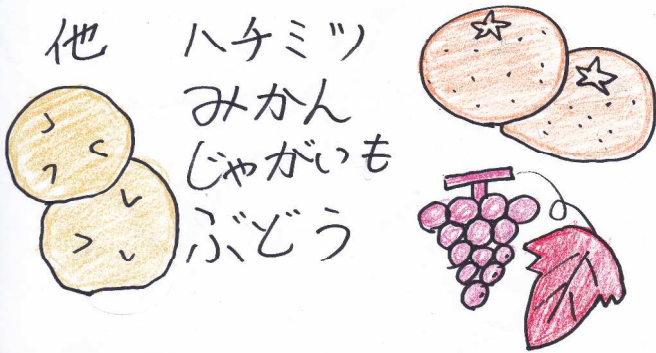 他 ハチミツ
みかん
じゃがいも
ぶどう